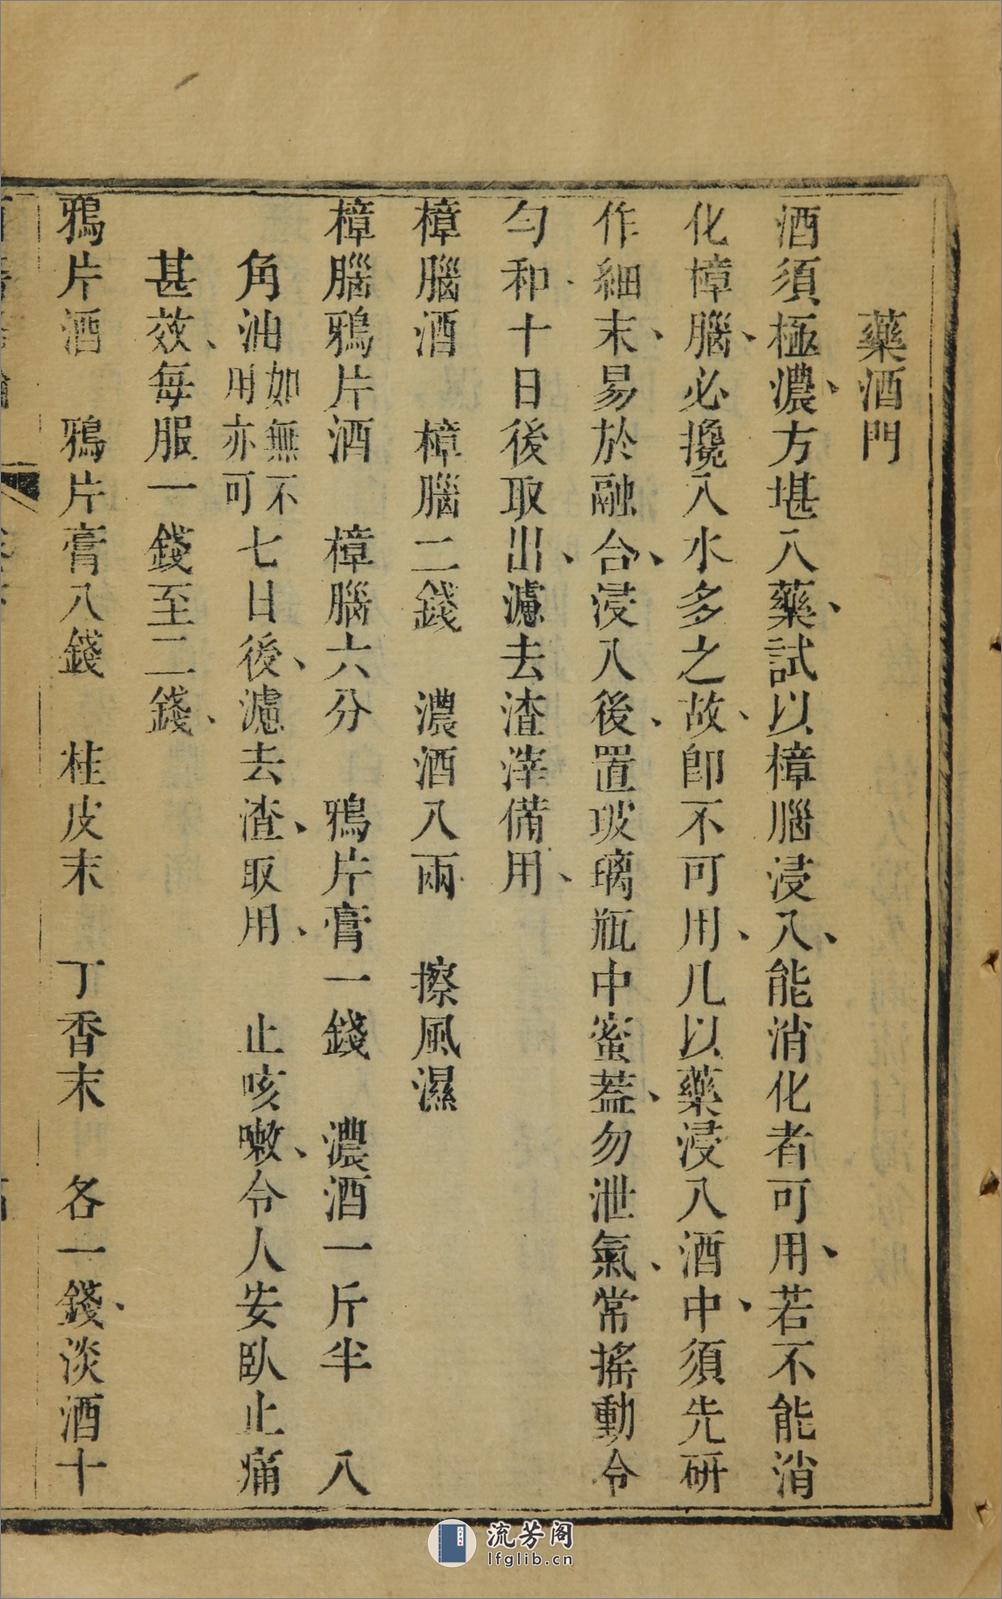 藥酒門
酒須極濃、方堪入藥、試以樟腦浸入、能消化者可用、若不能消
化樟腦、必攙入水多之故、卽不可用、凡以藥浸入酒中、須先研
作細末、易於融合、浸入後、置玻璃瓶中蜜蓋、勿泄氣、常搖動令
勻和十日後取出、濾去渣滓備用、
樟腦酒　樟腦二錢　濃酒八兩　擦風濕
樟腦鴉片酒　樟腦六分　鴉片膏一錢　濃酒一斤半　八
角油如無不用亦可七日後、濾去渣、取用、　止咳嗽、令人安臥止痛
甚效、每服一錢至二錢、
鴉片酒　鴉片膏八錢　桂皮末　丁香末　各一錢、淡酒十
流芳阁
lfglib.cn